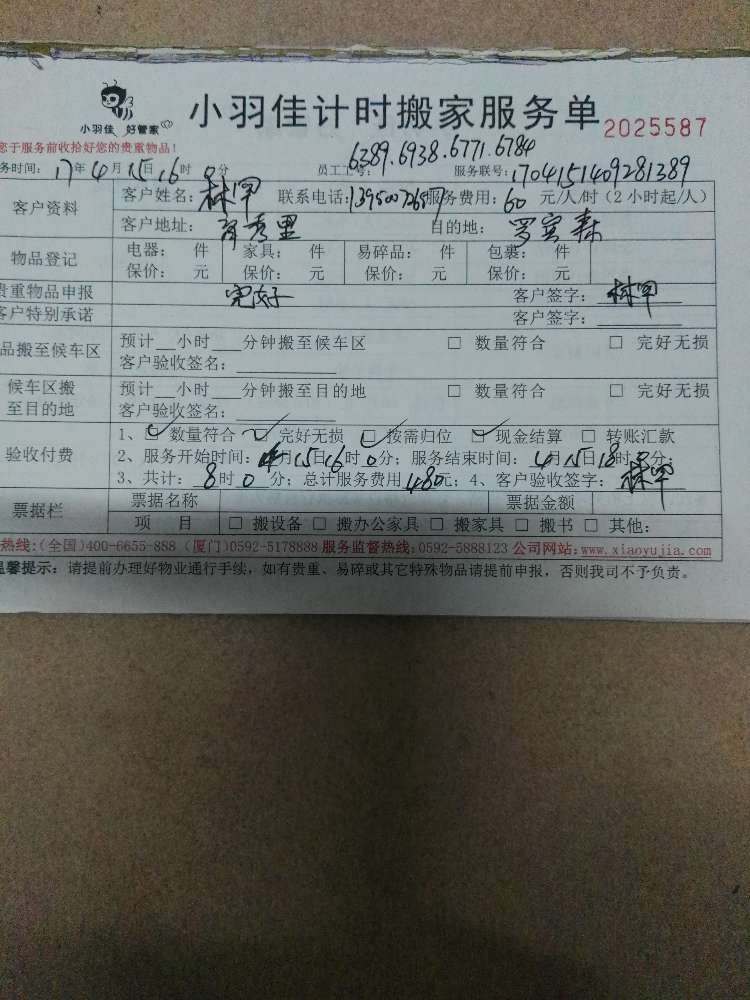 小羽佳 好管家
小羽佳计时搬家服务单
2025587
您于服务前收拾好您的贵重物品!
务时间: 17年4月15日16时0分 员工工号: 6389.6938.6771.6784 服务联号: 1704151409281389
客户资料 客户姓名: 林罕 联系电话: 服务费用: 60 元/人/时(2小时起/人)
客户地址: 秀里 目的地: 罗宾森
物品登记 电器: 件 家具: 件 易碎品: 件 包裹: 件
保价: 元 保价: 元 保价: 元 保价: 元
贵重物品申报 完好 客户签字: 林罕
客户特别承诺 客户签字:
品搬至候车区 预计__小时___分钟搬至候车区 □ 数量符合 □ 完好无损
客户验收签名:
候车区搬至目的地 预计__小时___分钟搬至目的地 □ 数量符合 □ 完好无损
客户验收签名:
验收付费 1、☑数量符合 ☑完好无损 ☑按需归位 ☑现金结算 □ 转账汇款
2、服务开始时间: 4月15日16时0分; 服务结束时间: 4月15日18时0分;
3、共计: 8时0分; 总计服务费用480元; 4、客户验收签字: 林罕
票据栏 票据名称 票据金额
项 目 □ 搬设备 □ 搬办公家具 □ 搬家具 □ 搬书 □ 其他:
热线:(全国)400-6655-888 (厦门)0592-5178888 服务监督热线:0592-5888123 公司网站:www.xiaoyujia.com
温馨提示: 请提前办理好物业通行手续, 如有贵重、易碎或其它特殊物品请提前申报, 否则我司不予负责。